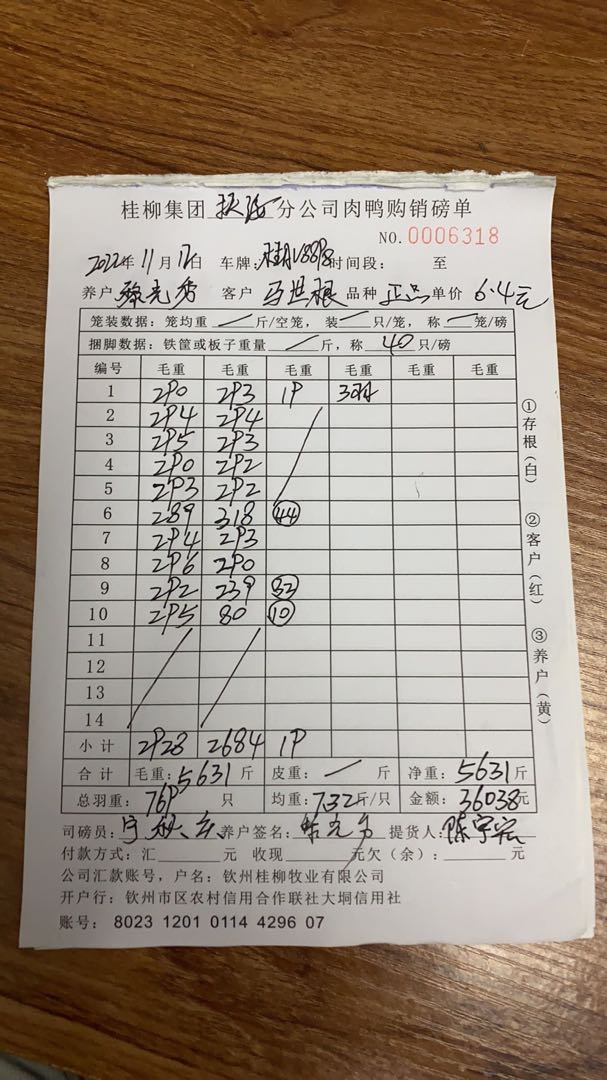 桂柳集团 扶海 分公司肉鸭购销磅单
NO.0006318
2022年11月17日 车牌: 时间段: 至
养户 客户 马世根 品种 正品 单价 6.4元
笼装数据: 笼均重 / 斤/空笼, 装 / 只/笼, 称 / 笼/磅
捆脚数据: 铁筐或板子重量 / 斤, 称 40 只/磅
编号 毛重 毛重 毛重 毛重 毛重 毛重
1 290 293 19
2 294 294
3 295 293
4 290 292
5 293 292
6 289 318 44
7 294 293
8 296 290
9 292 239 32
10 295 80 10
11
12
13
14
小计 2928 2684 19
合计 毛重: 5631 斤 皮重: / 斤 净重: 5631 斤
总羽重: 769 只 均重: 7.32 斤/只 金额: 36038 元
司磅员: 养户签名: 提货人: 陈宇宏
付款方式: 汇 元 收现 元欠(余): 元
公司汇款账号, 户名: 钦州桂柳牧业有限公司
开户行: 钦州市区农村信用合作联社大垌信用社
账号: 8023 1201 0114 4296 07
①存根(白)
②客户(红)
③养户(黄)